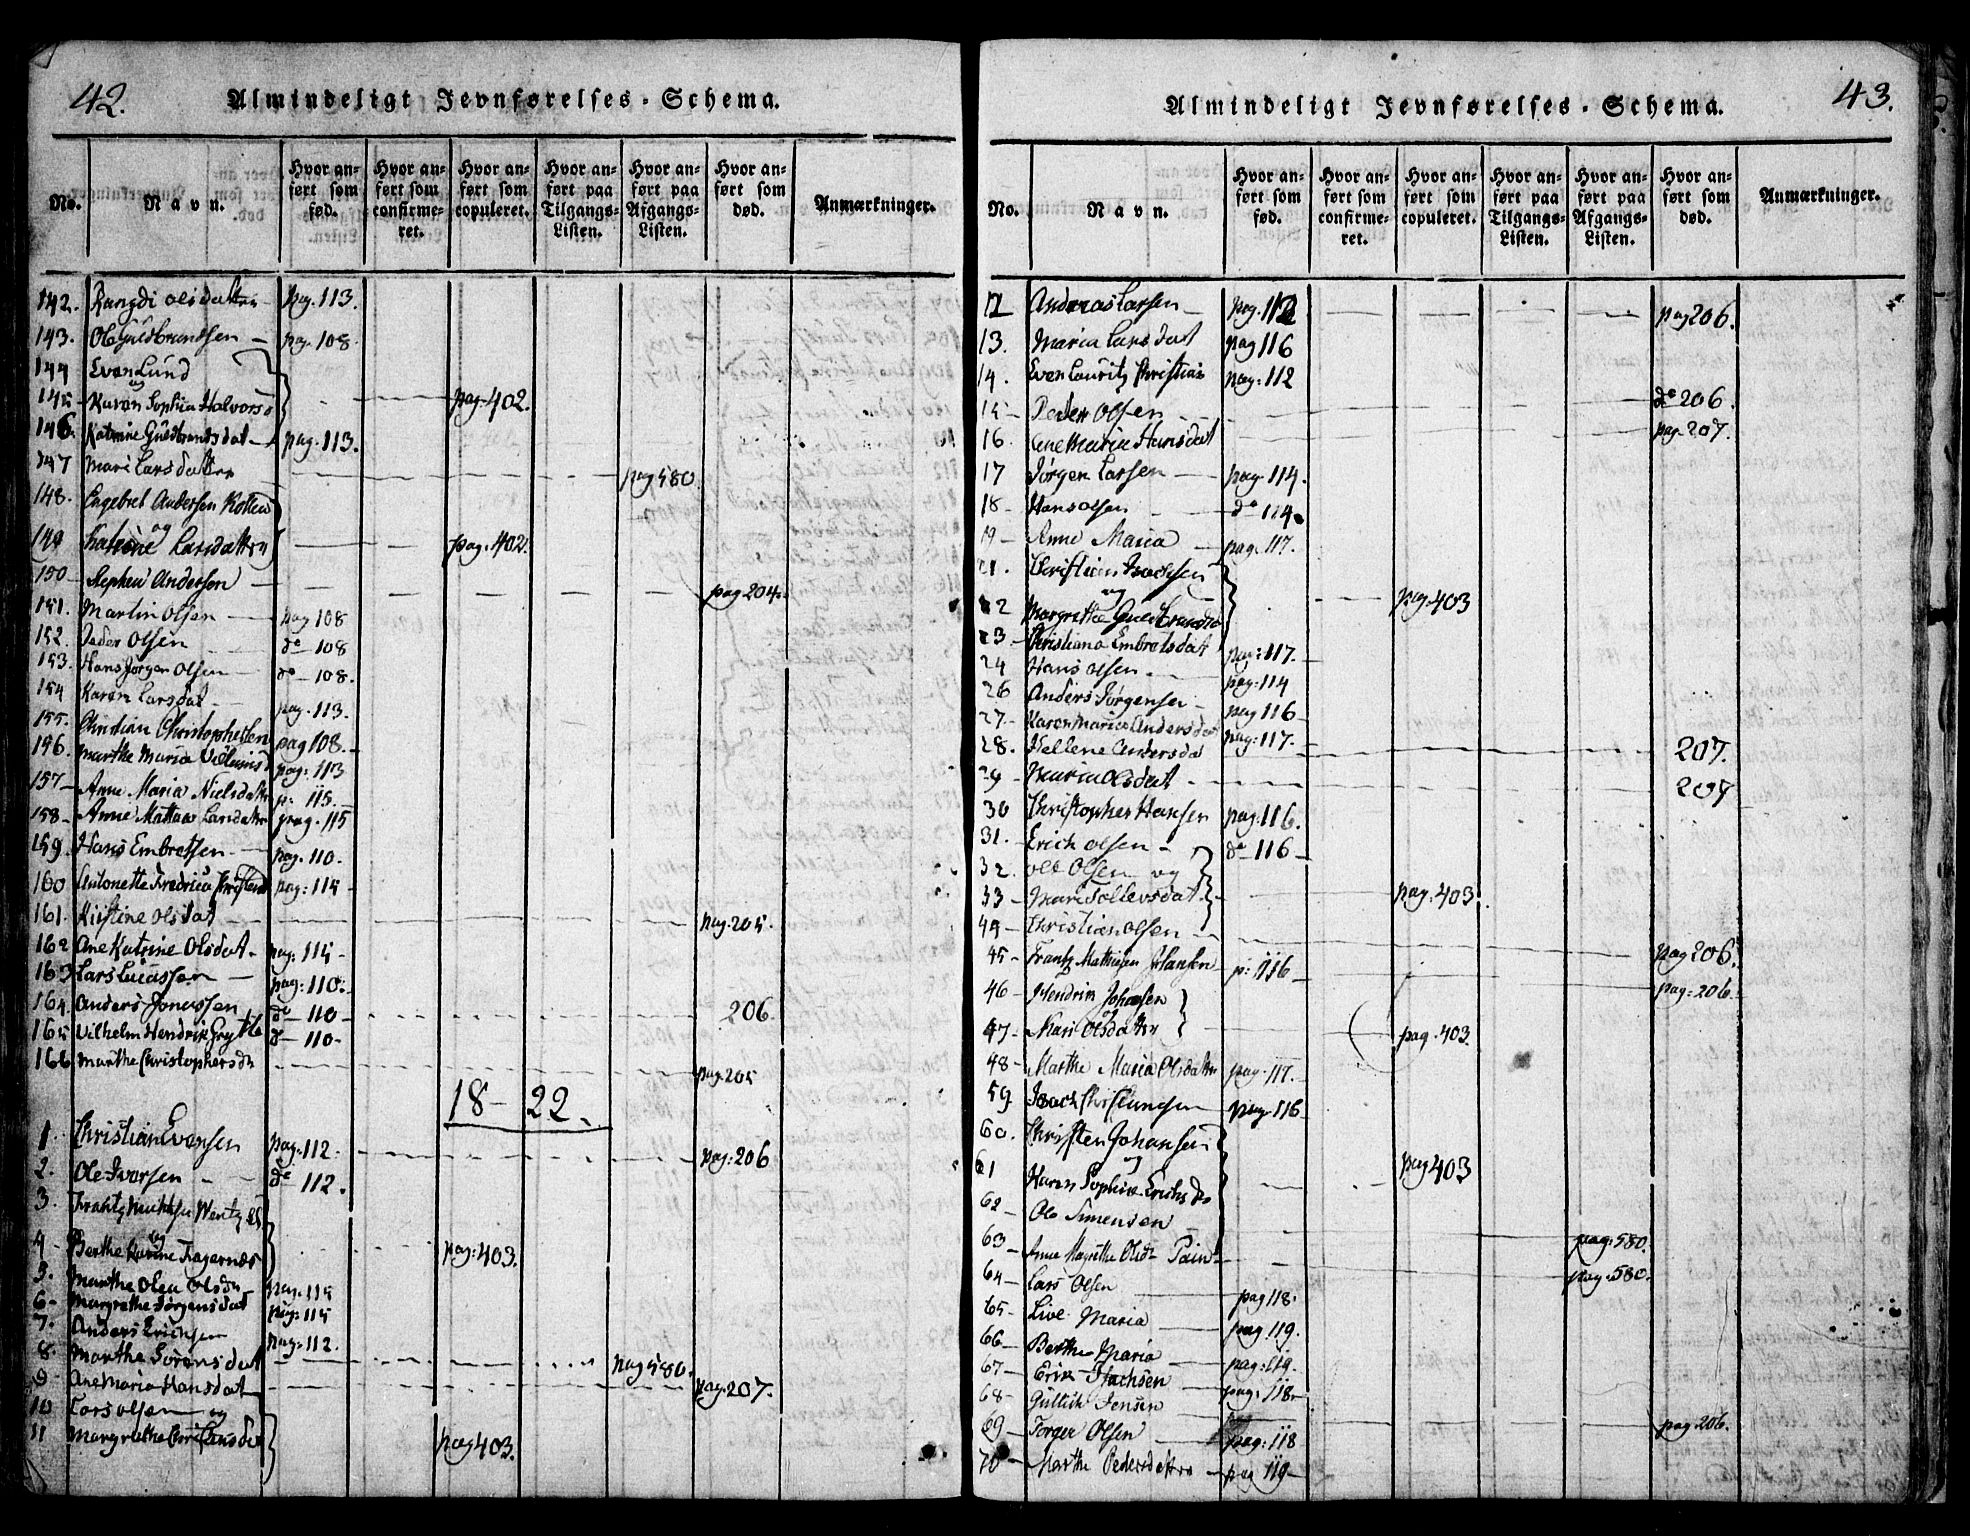 42.
Almindeligt Jevnførelses-Schema.
No.
Navn.
Hvor anført som fød.
Hvor anført som confirmeret.
Hvor anført som copuleret.
Hvor anført paa Tilgangs-Listen.
Hvor anført paa Afgangs-Listen.
Hvor anført som død.
Anmærkninger.
142. Rangdi Olsdatter - pag. 113.
143. Ole Guldbrandsen - pag. 108.
144 Even Lund
og
145 - Karen Sophia Halvors pag. 402.
146. Katrine Guldbrandsdat - pag. 113.
147 Mari Larsdatter pag 580.
148. Engebret Andersen Kotten
og
149 Larsdattr pag. 402.
150 - Stephen Andersen - pag 204.
151. Martin Olsen - pag 108
152. Peder Olsen do 108
153. Hans Jørgen Olsen - do - 108.
154 Karen Larsdat - pag. 113.
155. Christian Christophersen pag 108.
156. Marthe Maria pag: 113
157 - Anne Maria Nielsdattr p: 115.
158 - Anne Larsdattr pag. 115
159. Hans Embretsen - pag. 110.
160 Antonette Fredrica pag: 115
161. Kirstine Olsdat pag. 205.
162 Ane Katrine Olsdat - pag: 115 -
163 Lars Lucassen - pag: 110.
164 Anders Jonassen do - 110 - 206.
165 Vilhelm Hendrik do - 110 -
166 Marthe Christophersdr pag. 205
18 - 22.
1. Christian Evensen pag: 112. pag: 206
2. Ole Iversen - do 112.
3. Frantz
og
4 - Berthe Karine Fragernæs pag: 403.
5. Marthe Olea Olsdr pag. 115
6 - Margrethe Jørgensdat pag: 115
7. Anders Erichsen pag: 112.
8. Marthe Sørensdat pag 580.
9 - Ane Maria Hansdat pag. 207.
10 Lars Olsen og
11 Margrethe pag 403.
43.
Almindeligt Jevnførelses-Schema.
No.
Navn.
Hvor anført som fød.
Hvor anført som confirmeret.
Hvor anført som copuleret.
Hvor anført paa Tilgangs-Listen.
Hvor anført paa Afgangs-Listen.
Hvor anført som død.
Anmærkninger.
12 Andreas Larsen - pag. 112 pag 206.
13. Maria Larsdat pag 116
14. Even Lauritz Christian pag: 112
15 - Peder Olsen do 206.
16. Ane Maria Hansdat pag. 207.
17 Jørgen Larsen - pag. 114.
18 - Hans Olsen - do 114.
19 - Anne Maria - pag. 117.
21. Christian Isachsen
og
22 Margrethe pag. 403
23 - Christiana Embretsdat pag: 117.
24 Hans Olsen - pag: 114
26 Anders Jørgensen - pag 116 -
27 - Karen Marie Andersdat pag: 117.
28. Hellene Andersdat 207.
29 Maria Olsdat - 207
30 Christopher Hansen pag. 116.
31. Erich Olsen - do - 116 -
32. Ole Olsen og
33 - Mari Tollevsdat pag. 403.
44 - Christian Olsen - pag 206.
45 - Frantz Mathisen p: 116 - pag: 206.
46 - Hendrik Johnsen
og
47 - Mari Olsdattr pag. 403.
48 - Marthe Maria Olsdattr pag. 117.
59. Isach Christiansen pag. 116
60. Christen Johansen
og
61 Karen Sophia Erichsdr pag 403
62 - Ole Simensen
63 - Anne Magrethe Olsdr pag: 580.
64 - Lars Olsen pag 118. pag. 580.
65 - Live Maria pag 119.
66 - Berthe Maria - pag: 119.
67 - Erik Isachsen pag. 118 -
68 - Gullich Jensen pag. 206.
69 - Jørger Olsen pag: 118
70 - Marthe Pedersdattr - pag 119 -